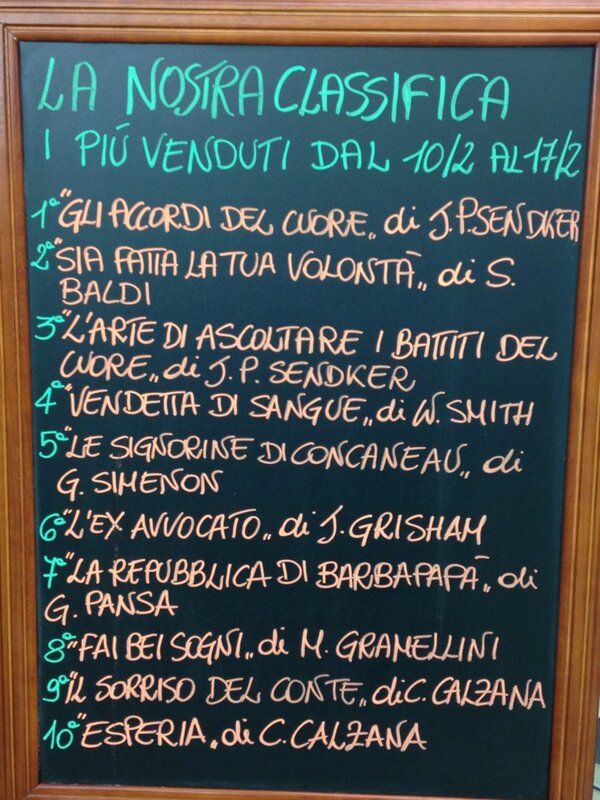 LA NOSTRA CLASSIFICA
I PIÚ VENDUTI DAL 10/2 AL 17/2
1° "GLI ACCORDI DEL CUORE„ di J.P.SENDKER
2° "SIA FATTA LA TUA VOLONTÀ„ di S.
BALDI
3° "L'ARTE DI ASCOLTARE I BATTITI DEL
CUORE„ di J.P. SENDKER
4° "VENDETTA DI SANGUE„ di W. SMITH
5° "LE SIGNORINE DI CONCANEAU„ di
G. SIMENON
6° "L'EX AVVOCATO„ di J. GRISHAM
7° "LA REPUBBLICA DI BARBAPAPÀ„ di
G. PANSA
8° "FAI BEI SOGNI„ di M. GRAMELLINI
9° "IL SORRISO DEL CONTE„ di C. CALZANA
10° "ESPERIA„ di C. CALZANA